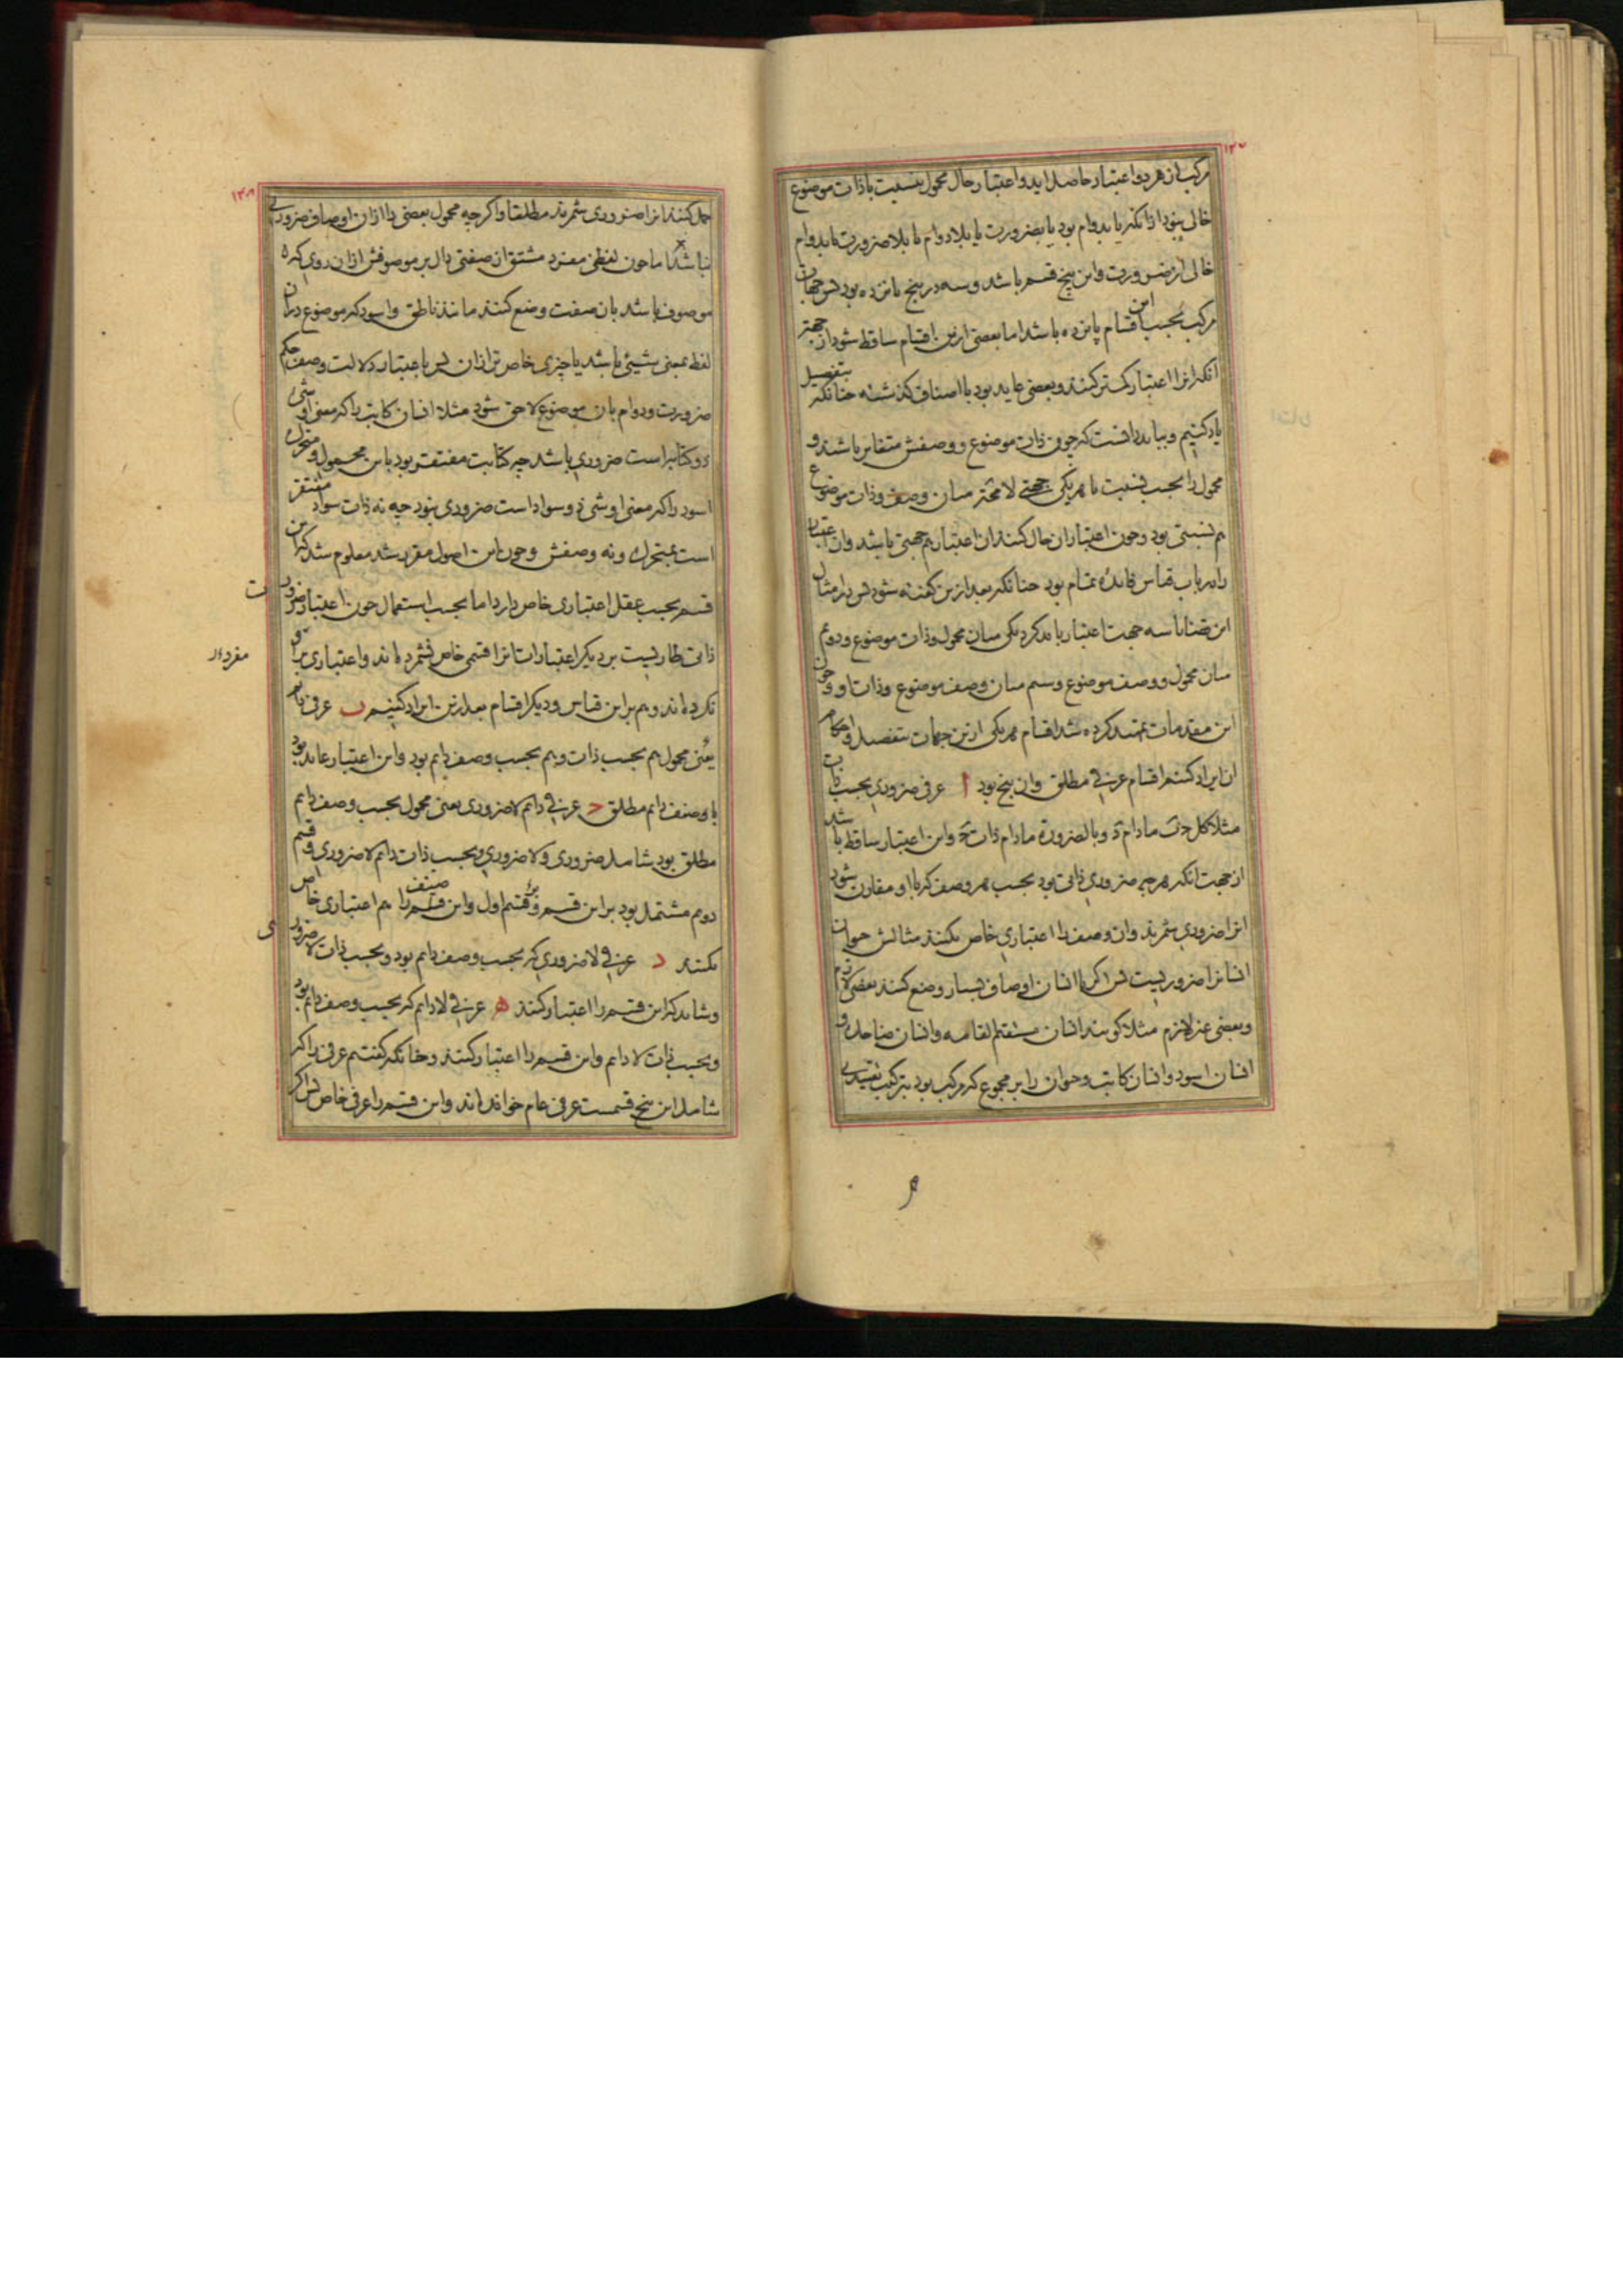 مرکب از هر دو اعتبار حاصل اید و اعتبار حال محمول بنسبت با ذات موضوع
خالی نبود از انکه یا بدوام بود یا بضرورت یا بلادوام یا بلاضرورت یا بدوام
خالی از ضرورت و این پنج قسم باشد و سه در پنج پانزده بود پس جهات
مرکب بحسب این اقسام پانزده باشد اما بعضی ازین اقسام ساقط شود از جهتر
انکه انرا اعتبار کمتر کنند و بعضی عاید بود با اصناف کذشته چنانکه بتفصیل
یاد کنیم و بباید دانست که چون ذات موضوع و وصفش متغایر باشند و
محمول را بحسب نسبت با هر یکی جهتی لا محة میان وصف و ذات موضوع
هم نسبتی بود و چون اعتبار ان حال کنند ان اعتبار هم جهتی باشد و ان اعتبار
را در باب قیاس فائده تمام بود چنانکه بعد ازین کفته شود پس در امثال
این قضایا سه جهت اعتبار باید کرد یکی میان محمول و ذات موضوع و دوم
میان محمول و وصف موضوع و سیم میان وصف موضوع و ذات او و چون
این مقدمات تمهید کرده شد اقسام هر یکی ازین جهات بتفصیل و احکام
ان ایراد کنیم اقسام عرفی مطلق و ان پنج بود ا عرفی ضروری بحسب ذات
مثلا کل ج ب مادام ج و بالضرورة مادام ذات ج و این اعتبار ساقط باشد
از جهت انکه هر چه ضروری ذاتی بود بحسب هر وصف که با او مقارن شود
انرا ضروری شمرند و ان وصف را اعتباری خاص نکنند مثالش حیوان
انسانرا ضروریست پس اکر با انسان اوصاف بسیار وضع کنند بعضی لازم
و بعضی غیر لازم مثلا کویند انسان مستقیم القامه و انسان ضاحک و
انسان اسود و انسان کاتب و حیوان را بر مجموع که مرکب بود بترکیب تقییدی
حمل کنند انرا ضروری شمرند مطلقا و اکرچه محمول بعضی را از ان اوصاف ضروری
نباشد اما چون لفظی مفرد مشتق از صفتی دال بر موصوفش از ان روی که
موصوف باشد بان صفت وضع کنند مانند ناطق و اسود که موضوع در ان
لفظ بمعنی شیئی باشد یا چیزی خاص تر از ان پس باعتبار دلالت وصف حکم
ضرورت و دوام بان موضوع لاحق شود مثلا انسان کاتب را که معنی او شی
ذو کتابتست ضروری باشد چه کتابت مفتقر بود باین محمول و متحرک
اسود را که معنی او شی ذو سواد است ضروری نبود چه نه ذات سواد مفتقر
است بمتحرک و نه وصفش و چون این اصول مقرر شد معلوم شد که این
قسم بحسب عقل اعتباری خاص دارد اما بحسب استعمال چون اعتبار ضرورت
ذاتی طاریست بر دیکر اعتبارات انرا قسمی خاص نشمرده اند و اعتباری
نکرده اند و هم بر این قیاس و دیکر اقسام بعد ازین ایراد کنیم ب عرفی دایم
یعنی محمول هم بحسب ذات و هم بحسب وصف دایم بود و این اعتبار عاید بود
با وصف دایم مطلق ج عرفی دایم لاضروری یعنی محمول بحسب وصف دایم
مطلق بود شامل ضروری و لاضروری و بحسب ذات دایم لاضروری و قسم
دوم مشتمل بود بر این قسم و بر قسم اول و این صنف را هم اعتباری خاص
نکنند د عرفی لاضروری که بحسب وصف دایم بود و بحسب ذات لاضروری
و شاید که این قسم را اعتبار کنند ه عرفی لادایم که بحسب وصف دایم بود
و بحسب ذات لادایم و این قسم را اعتبار کنند و چنانکه کفتیم عرفی را که
شامل این پنج قسمست عرفی عام خوانده اند و این قسم را عرفی خاص پس اکر